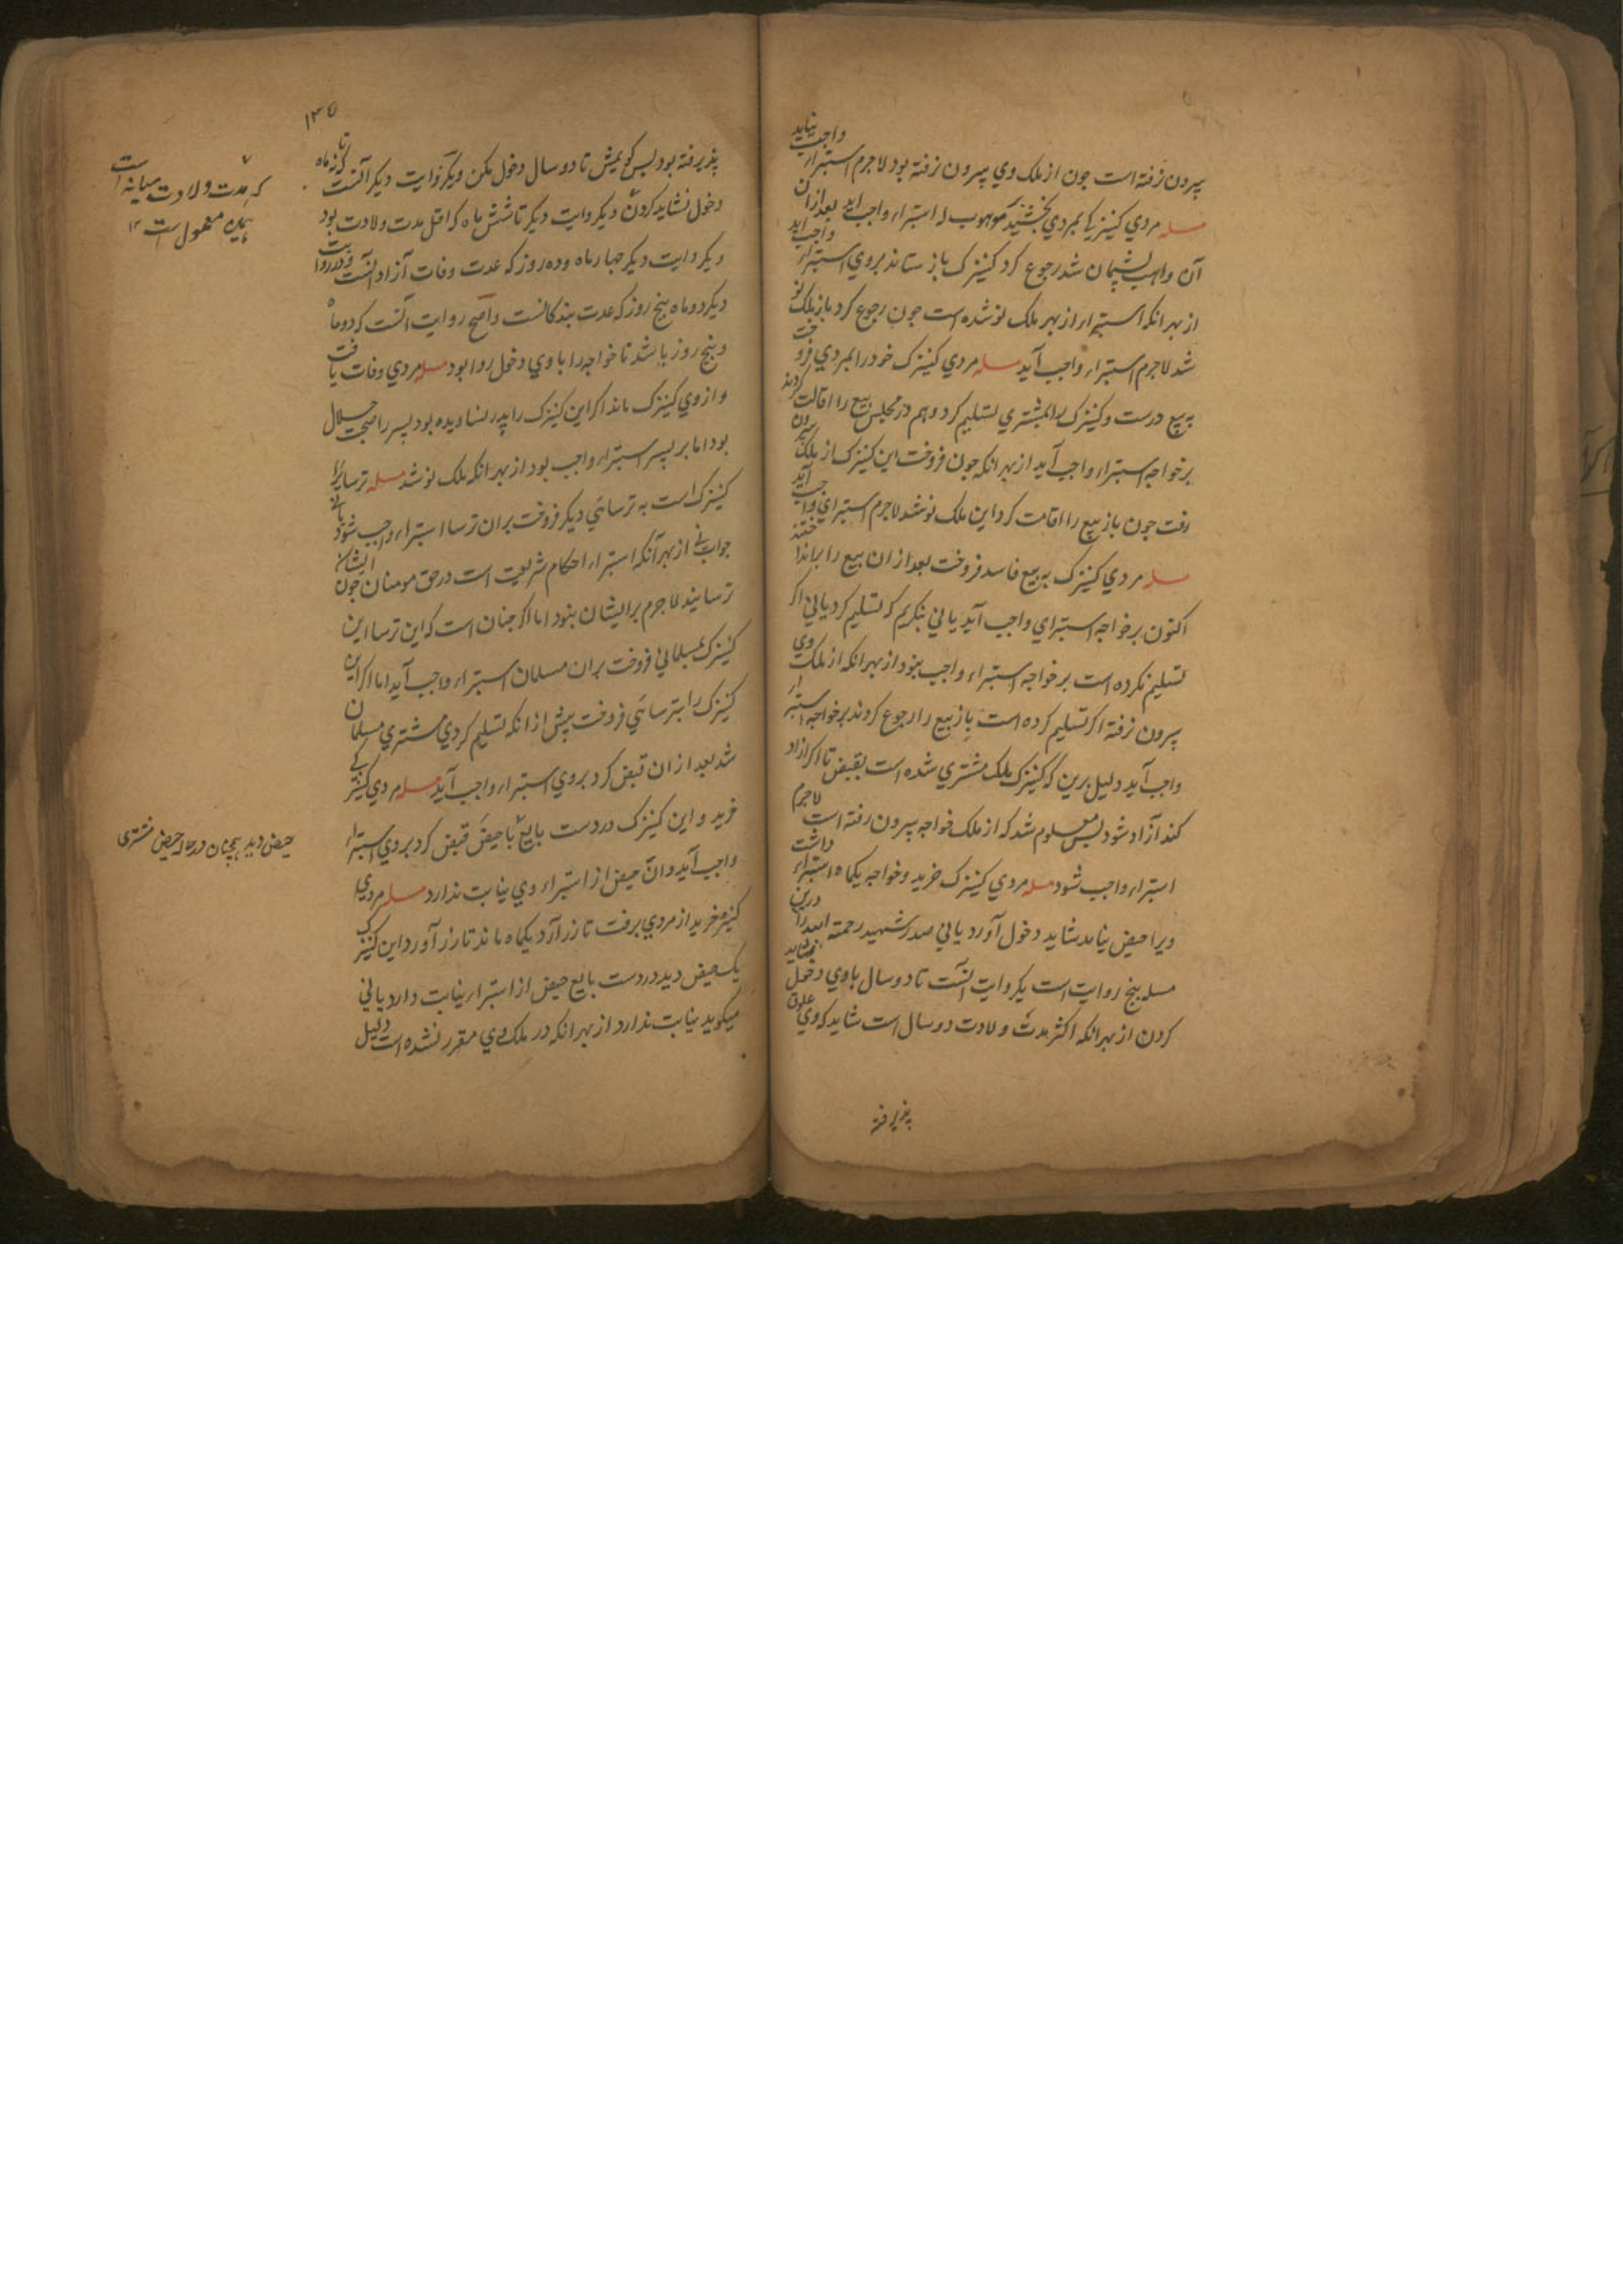 پیرون نرفته است چون از ملک وي پیرون نرفته بود لاجرم استبراء واجب نیاید
مسله مردي کنیزکي بمردي بخشید موهوب له استبراء واجب اید بعد ازان
آن واهب پشیمان شد رجوع کرد کنیزک باز ستاند بروي استبراء واجب اید
از بهر انکه استبراء از بهر ملک نو شده است چون رجوع کرد باز ملک نو
شد لاجرم استبراء واجب آید مسله مردي کنیزک خود را بمردي فروخت
به بیع درست و کنیزک را بمشتري تسلیم کرد و هم در مجلس بیع را اقالت کردند
برخواجه استبراء واجب آید از بهر انکه چون فروخت این کنیزک از ملک بیرون
رفت چون باز بیع را اقامت کرد این ملک نو شد لاجرم استبراي واجب آید
مسله مردي کنیزک به بیع فاسد فروخت بعد از ان بیع را برانداختند
اکنون برخواجه استبراي واجب آید یا ني بنکریم که تسلیم کرد یا ني اکر
تسلیم نکرده است برخواجه استبراء واجب نبود از بهر انکه از ملک وي
پیرون نرفته اکر تسلیم کرده است باز بیع را رجوع کردند برخواجه استبراء
واجب آید دلیل برین که کنیزک ملک مشتري شده است بقبض تا اکر آزاد
کند آزاد شود پس معلوم شد که از ملک خواجه پیرون رفته است لاجرم
استبراء واجب شود مسله مردي کنیزک خرید و خواجه یکماه استبراء داشت
ویرا حیض نیامد شاید دخول آورد یا ني صدر شهید رحمته الله را درین
مسله پنج روایت است یکروایت آنست تا دو سال با وي دخول نشاید
کردن از بهر انکه اکثر مدت ولادت دو سال است شاید که وي علوق
پذیرفته
١٣٥
پذیرفته بود پس کویمش تا دو سال دخول مکن و یکروایت دیکر آنست تا که نه ماه
دخول نشاید کردن و یکروایت دیکر تا شش ماه که اقل مدت ولادت بود
و یکروایت دیکر چهار ماه و ده روز که عدت وفات آزاد آنست و در روایت
دیکر دو ماه پنج روز که عدت بندکانست و اصح روایت آنست که دو ماه
و پنج روز باشد تا خواجه را با وي دخول روا بود مسله مردي وفات یافت
و از وي کنیزک ماند اکر این کنیزک را پدر نساویده بود پسر را صحبت حلال
بود اما بر پسر استبراء واجب بود از بهر انکه ملک نو شد مسله ترسایي را
کنیزک است به ترسائي دیکر فروخت بران ترسا استبراء واجب شود یا ني
جواب ني از بهر آنکه استبراء احکام شریعت است در حق مومنان چون ایشان
ترسایند لاجرم برایشان نبود اما اکر چنان است که این ترسا این
کنیزک بمسلماني فروخت بران مسلمان استبراء واجب آید اما اکر این
کنیزک را بترسائي فروخت پیش از انکه تسلیم کردي مشتري مسلمان
شد بعد از ان قبض کرد بروي استبراء واجب آید مسله مردي کنیزکي
خرید و این کنیزک در دست بایع با حیض قبض کرد بروي استبراء
واجب آید و ان حیض از استبراء وي نیابت ندارد مسله مردي
کنیزک خرید از مردي برفت تا زر آرد یکماه ماند تا زر آورد این کنیزک
یک حیض دید در دست بایع حیض از استبراء نیابت دارد یا ني
میکوید نیابت ندارد از بهر انکه در ملک وي مقرر نشده است دلیل
که مدت ولادت میانه است
همین معمول است ١٢
حیض دید همچنان در حالۀ حیض مشتری